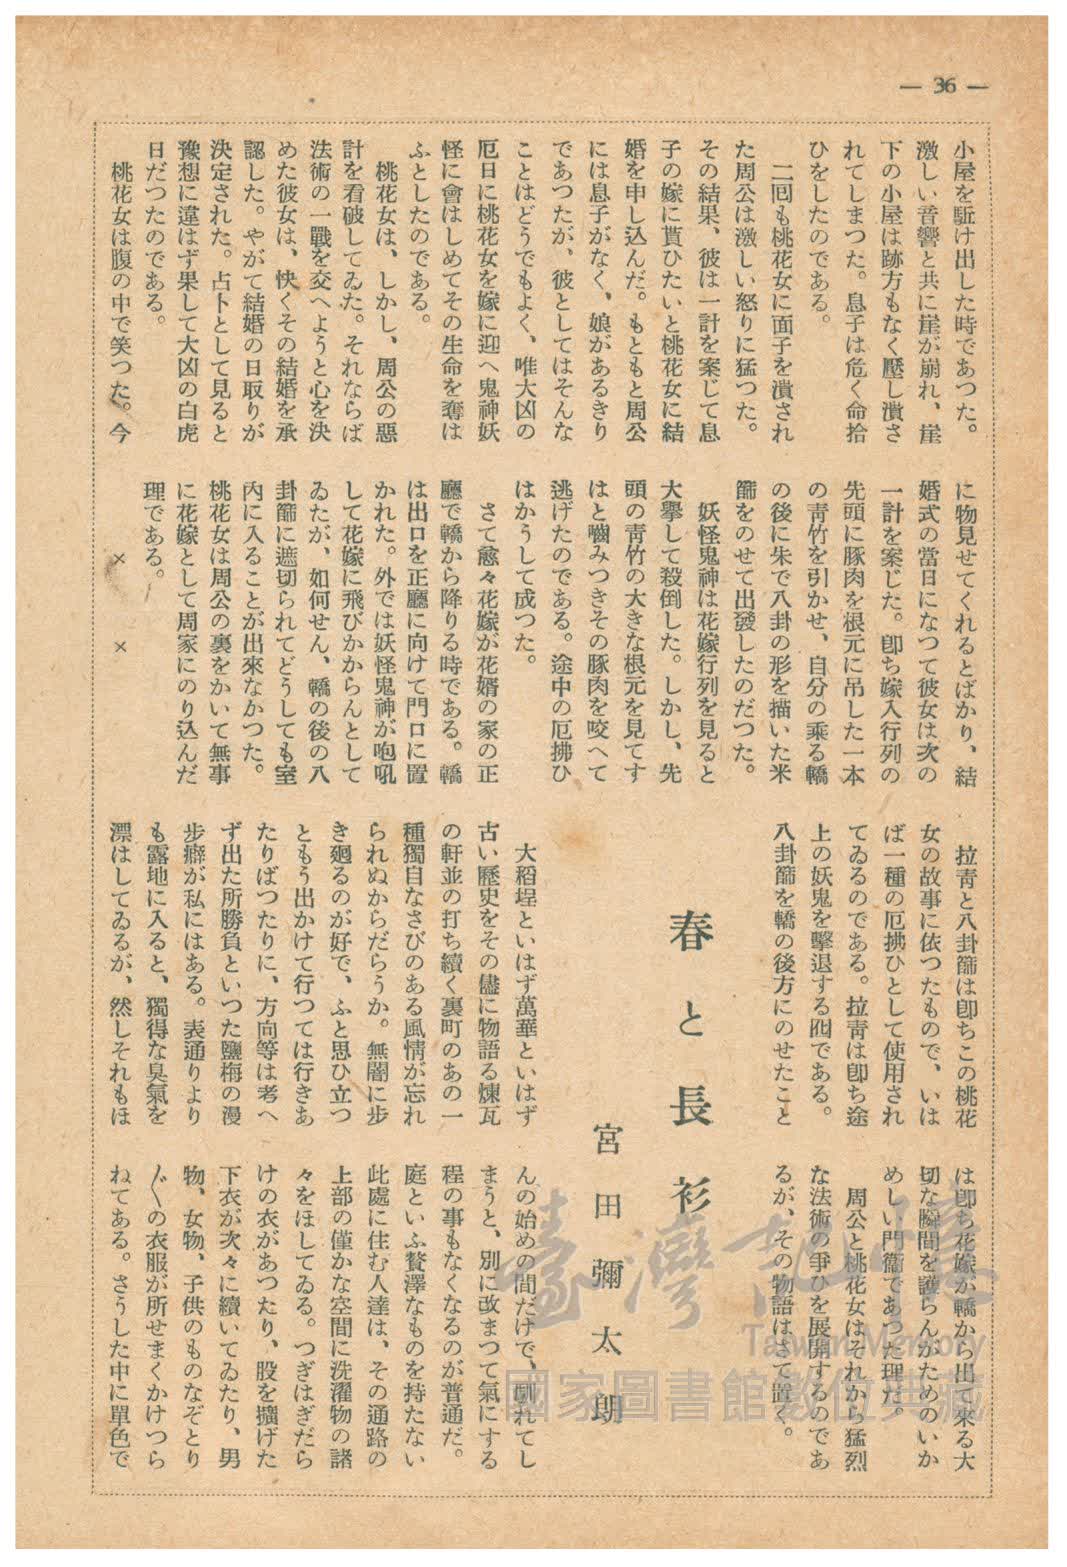 — 36 —
小屋を駈け出した時であつた。
激しい音響と共に崖が崩れ、崖
下の小屋は跡方もなく壓し潰さ
れてしまつた。息子は危く命拾
ひをしたのである。
二囘も桃花女に面子を潰され
た周公は激しい怒りに猛つた。
その結果、彼は一計を案じて息
子の嫁に貰ひたいと桃花女に結
婚を申し込んだ。もともと周公
には息子がなく、娘があるきり
であつたが、彼としてはそんな
ことはどうでもよく、唯大凶の
厄日に桃花女を嫁に迎へ鬼神妖
怪に會はしめてその生命を奪は
ふとしたのである。
桃花女は、しかし、周公の惡
計を看破してゐた。それならば
法術の一戰を交へようと心を決
めた彼女は、快くその結婚を承
認した。やがて結婚の日取りが
決定された。占卜として見ると
豫想に違はず果して大凶の白虎
日だつたのである。
桃花女は腹の中で笑つた。今
に物見せてくれるとばかり、結
婚式の當日になつて彼女は次の
一計を案じた。卽ち嫁入行列の
先頭に豚肉を根元に吊した一本
の靑竹を引かせ、自分の乘る轎
の後に朱で八卦の形を描いた米
篩をのせて出發したのだつた。
妖怪鬼神は花嫁行列を見ると
大擧して殺倒した。しかし、先
頭の靑竹の大きな根元を見てす
はと嚙みつきその豚肉を咬へて
逃げたのである。途中の厄拂ひ
はかうして成つた。
さて愈々花嫁が花婿の家の正
廳で轎から降りる時である。轎
は出口を正廳に向けて門口に置
かれた。外では妖怪鬼神が咆吼
して花嫁に飛びかからんとして
ゐたが、如何せん、轎の後の八
卦篩に遮切られてどうしても室
內に入ることが出來なかつた。
桃花女は周公の裏をかいて無事
に花嫁として周家にのり込んだ
理である。
× ×
拉靑と八卦篩は卽ちこの桃花
女の故事に依つたもので、いは
ば一種の厄拂ひとして使用され
てゐるのである。拉靑は卽ち途
上の妖鬼を擊退する囮である。
八卦篩を轎の後方にのせたこと
は卽ち花嫁が轎から出て來る大
切な瞬間を護らんがためのいか
めしい門衞であつた理だ。
周公と桃花女はそれから猛烈
な法術の爭ひを展開するのであ
るが、その物語はさて置く。
春と長衫
宮田彌太朗
大稻埕といはず萬華といはず
古い歷史をその儘に物語る煉瓦
の軒並の打ち續く裏町のあの一
種獨自なさびのある風情が忘れ
られぬからだらうか。無闇に步
き廻るのが好で、ふと思ひ立つ
ともう出かけて行つては行きあ
たりばつたりに、方向等は考へ
ず出た所勝負といつた鹽梅の漫
步癖が私にはある。表通りより
も露地に入ると、獨得な臭氣を
漂はしてゐるが、然しそれもほ
んの始めの間だけで、馴れてし
まうと、別に改まつて氣にする
程の事もなくなるのが普通だ。
庭といふ贅澤なものを持たない
此處に住む人達は、その通路の
上部の僅かな空間に洗濯物の諸
々をほしてゐる。つぎはぎだら
けの衣があつたり、股を擴げた
下衣が次々に續いてゐたり、男
物、女物、子供のものなぞとり
〴〵の衣服が所せまくかけつら
ねてある。さうした中に單色で
臺灣記憶
Taiwan Memory
國家圖書館數位典藏